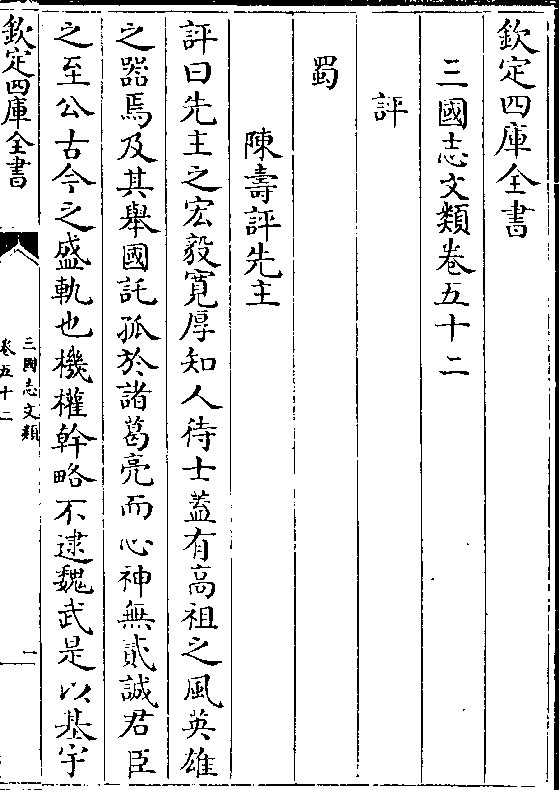 欽定四庫全書
三國志文類卷五十二
評
蜀
陳壽評先主
評曰先主之宏毅寛厚知人待士葢有高祖之風英雄
之器焉及其舉國託孤於諸葛亮而心神無貳誠君臣
之至公古今之盛軌也機權幹略不逮魏武是以基宇
欽定四庫全書
三國志文類
卷五十二
一